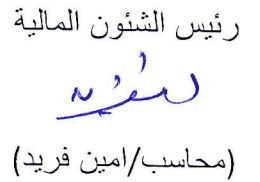 رئيس الشئون المالية
(محاسب/امين فريد)